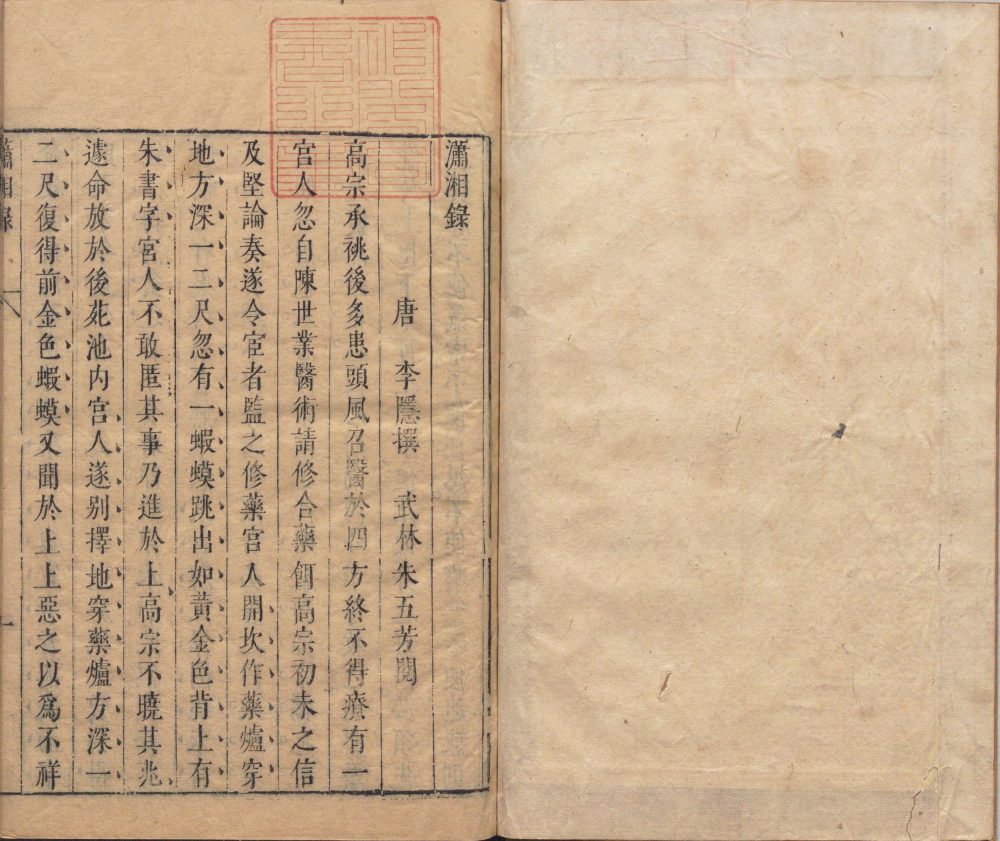 瀟湘錄
唐 李隱撰 武林朱五芳閱
高宗承祧後多患頭風召醫於四方終不得療有一
宮人忽自陳世業醫術請修合藥餌高宗初未之信
及堅論奏遂令宦者監之修藥宮人開坎作藥爐穿
地方深一二尺忽有一蝦蟆跳出如黃金色背上有
朱書字宮人不敢匿其事乃進於上高宗不曉其兆
遽命放於後苑池內宮人遂别擇地穿藥爐方深一
二尺復得前金色蝦蟆又聞於上上惡之以爲不祥
瀟湘錄 一